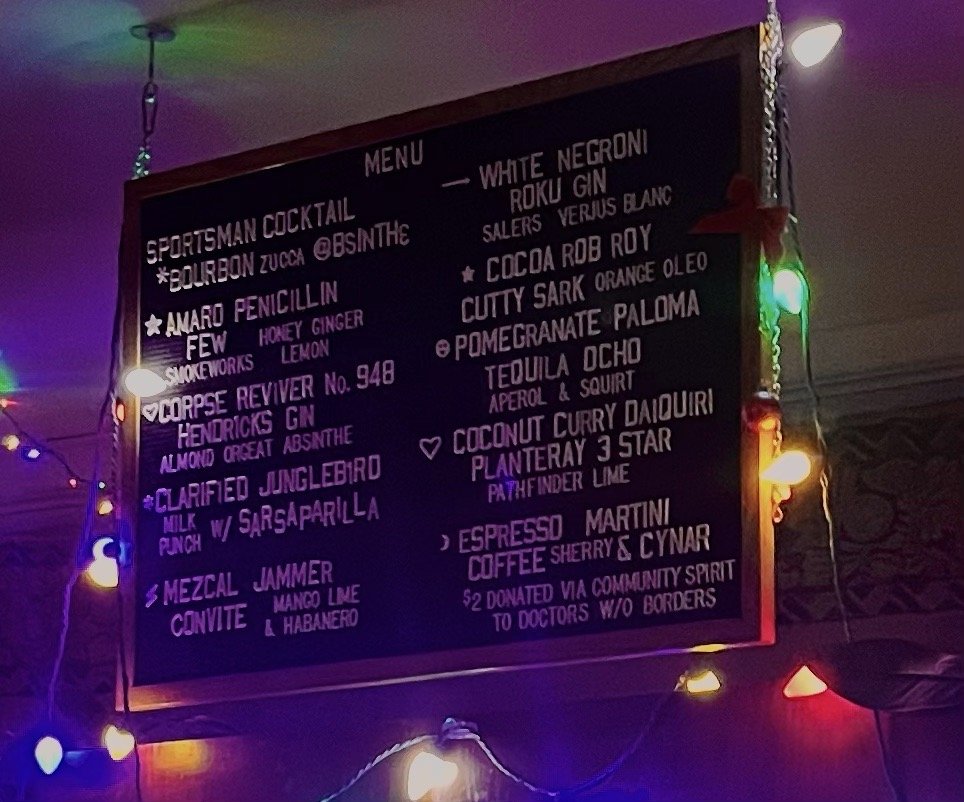 MENU
SPORTSMAN COCKTAIL
*BOURBON ZUCCA @BSINTHE
AMARO PENICILLIN
FEW HONEY GINGER
SMOKEWORKS LEMON
CORPSE REVIVER No. 948
HENDRICKS GIN
ALMOND ORGEAT ABSINTHE
CLARIFIED JUNGLEBIRD
MILK PUNCH W/ SARSAPARILLA
MEZCAL JAMMER
CONVITE MANGO LIME
& HABANERO
WHITE NEGRONI
ROKU GIN
SALERS VERJUS BLANC
COCOA ROB ROY
CUTTY SARK ORANGE OLEO
POMEGRANATE PALOMA
TEQUILA OCHO
APEROL & SQUIRT
COCONUT CURRY DAIQUIRI
PLANTERAY 3 STAR
PATHFINDER LIME
ESPRESSO MARTINI
COFFEE SHERRY & CYNAR
$2 DONATED VIA COMMUNITY SPIRIT
TO DOCTORS W/O BORDERS